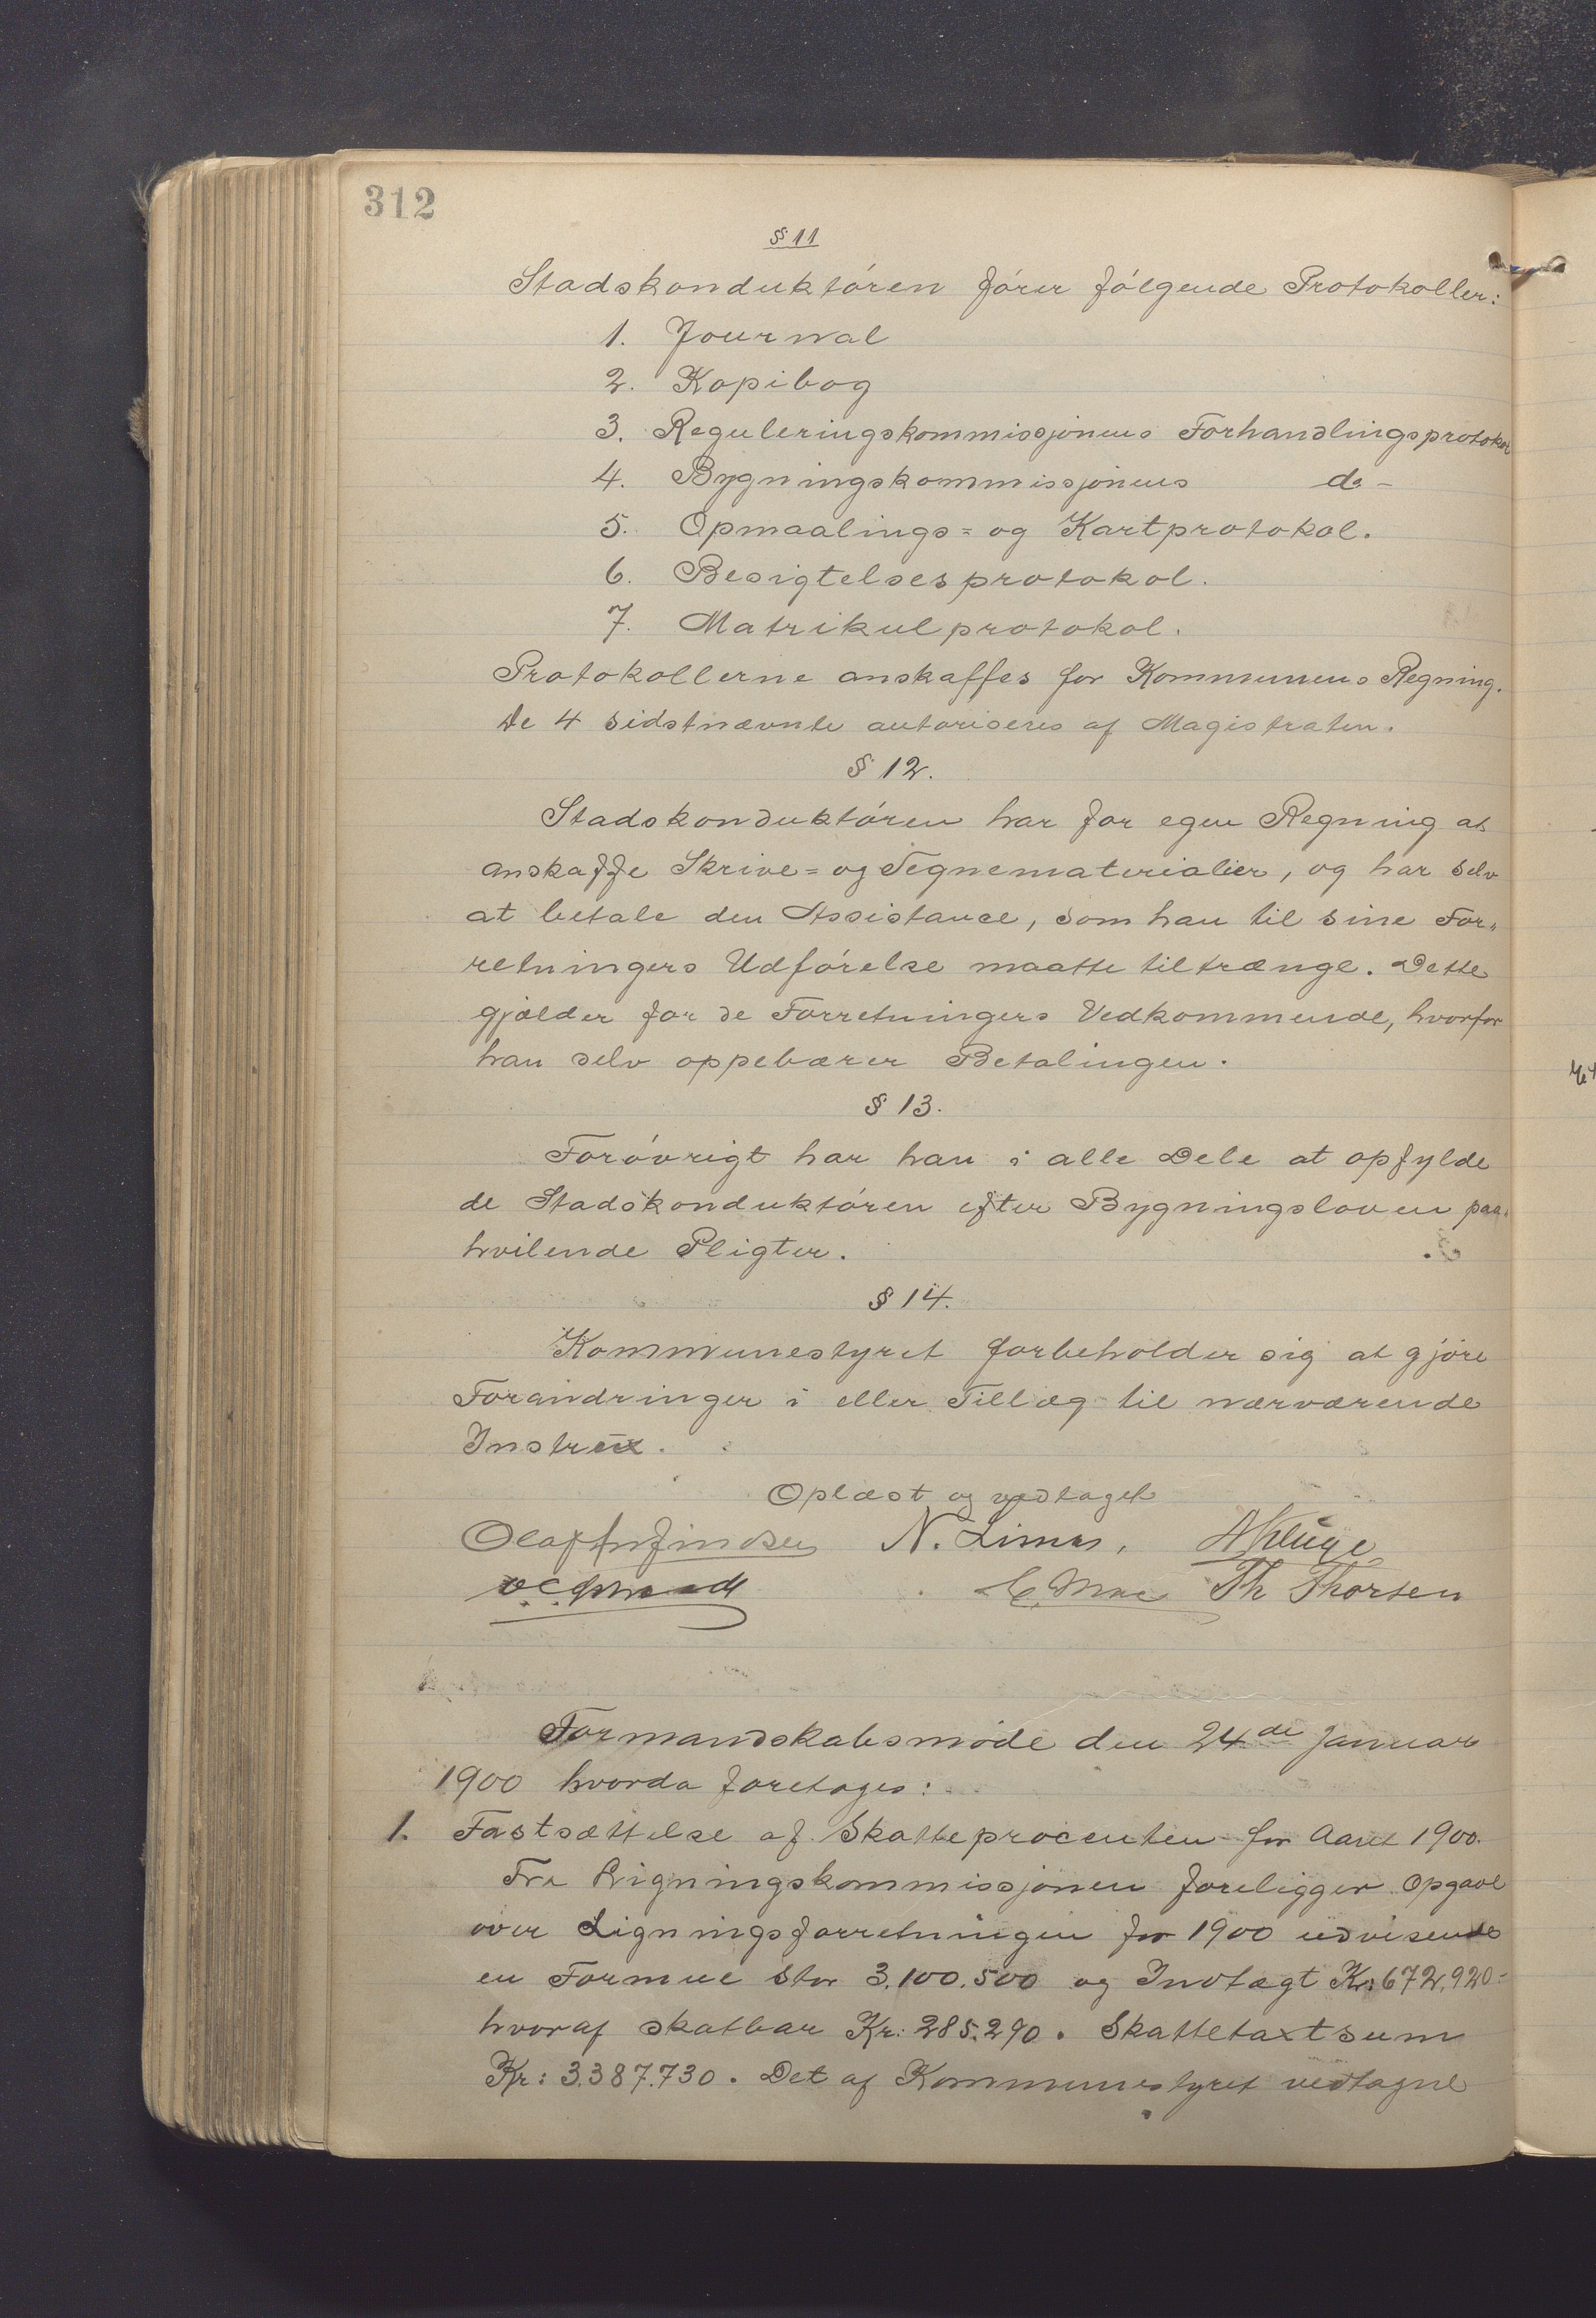 312
§ 11
Stadskonduktóren fórer fólgende Protokoller:
1. Journal
2. Kopibog
3. Reguleringskommissjonens Forhandlingsprotokol
4. Bygningskommissjonens do -
5. Opmaalings= og Kartprotokol.
6. Besigtelsesprotokol.
7. Matrikulprotokol.
Protokollerne anskaffes for Kommunens Regning.
De 4 sidstnævnte autoriseres af Magistraten.
§ 12.
Stadskonduktóren har for egen Regning at
anskaffe Skrive= og Tegnematerialier, og har selv
at betale den Assistance, som han til sine For„
retningers Udfórelse maatte tiltrænge. Dette
gjælder for de Forretningers Vedkommende, hvorfor
han selv oppebærer Betalingen.
§ 13.
Foróvrigt har han i alle Dele at opfylde
de Stadskonduktóren efter Bygningsloven paa„
hvilende Pligter.
§ 14.
Kommunestyret forbeholder sig at gjóre
Forandringer i eller Tillæg til nærværende
Instrux.
Oplæst og vedtaget
Olaf N. Limas, A Kluge
Th Thorsen
Formandskabsmóde den 24de Januar
1900 hvorda foretoges:
1. Fastsættelse af Skatteprocenten for Aaret 1900.
Fra Ligningskommissjonen foreligger Opgave
over Ligningsforretningen for 1900 udvisende
en Formue stor 3.100.500 og Indtægt Kr: 672.920 -
hvoraf skatbar Kr: 285.290. Skattetaxtsum
Kr: 3.387.730. Det af Kommunestyret vedtagne